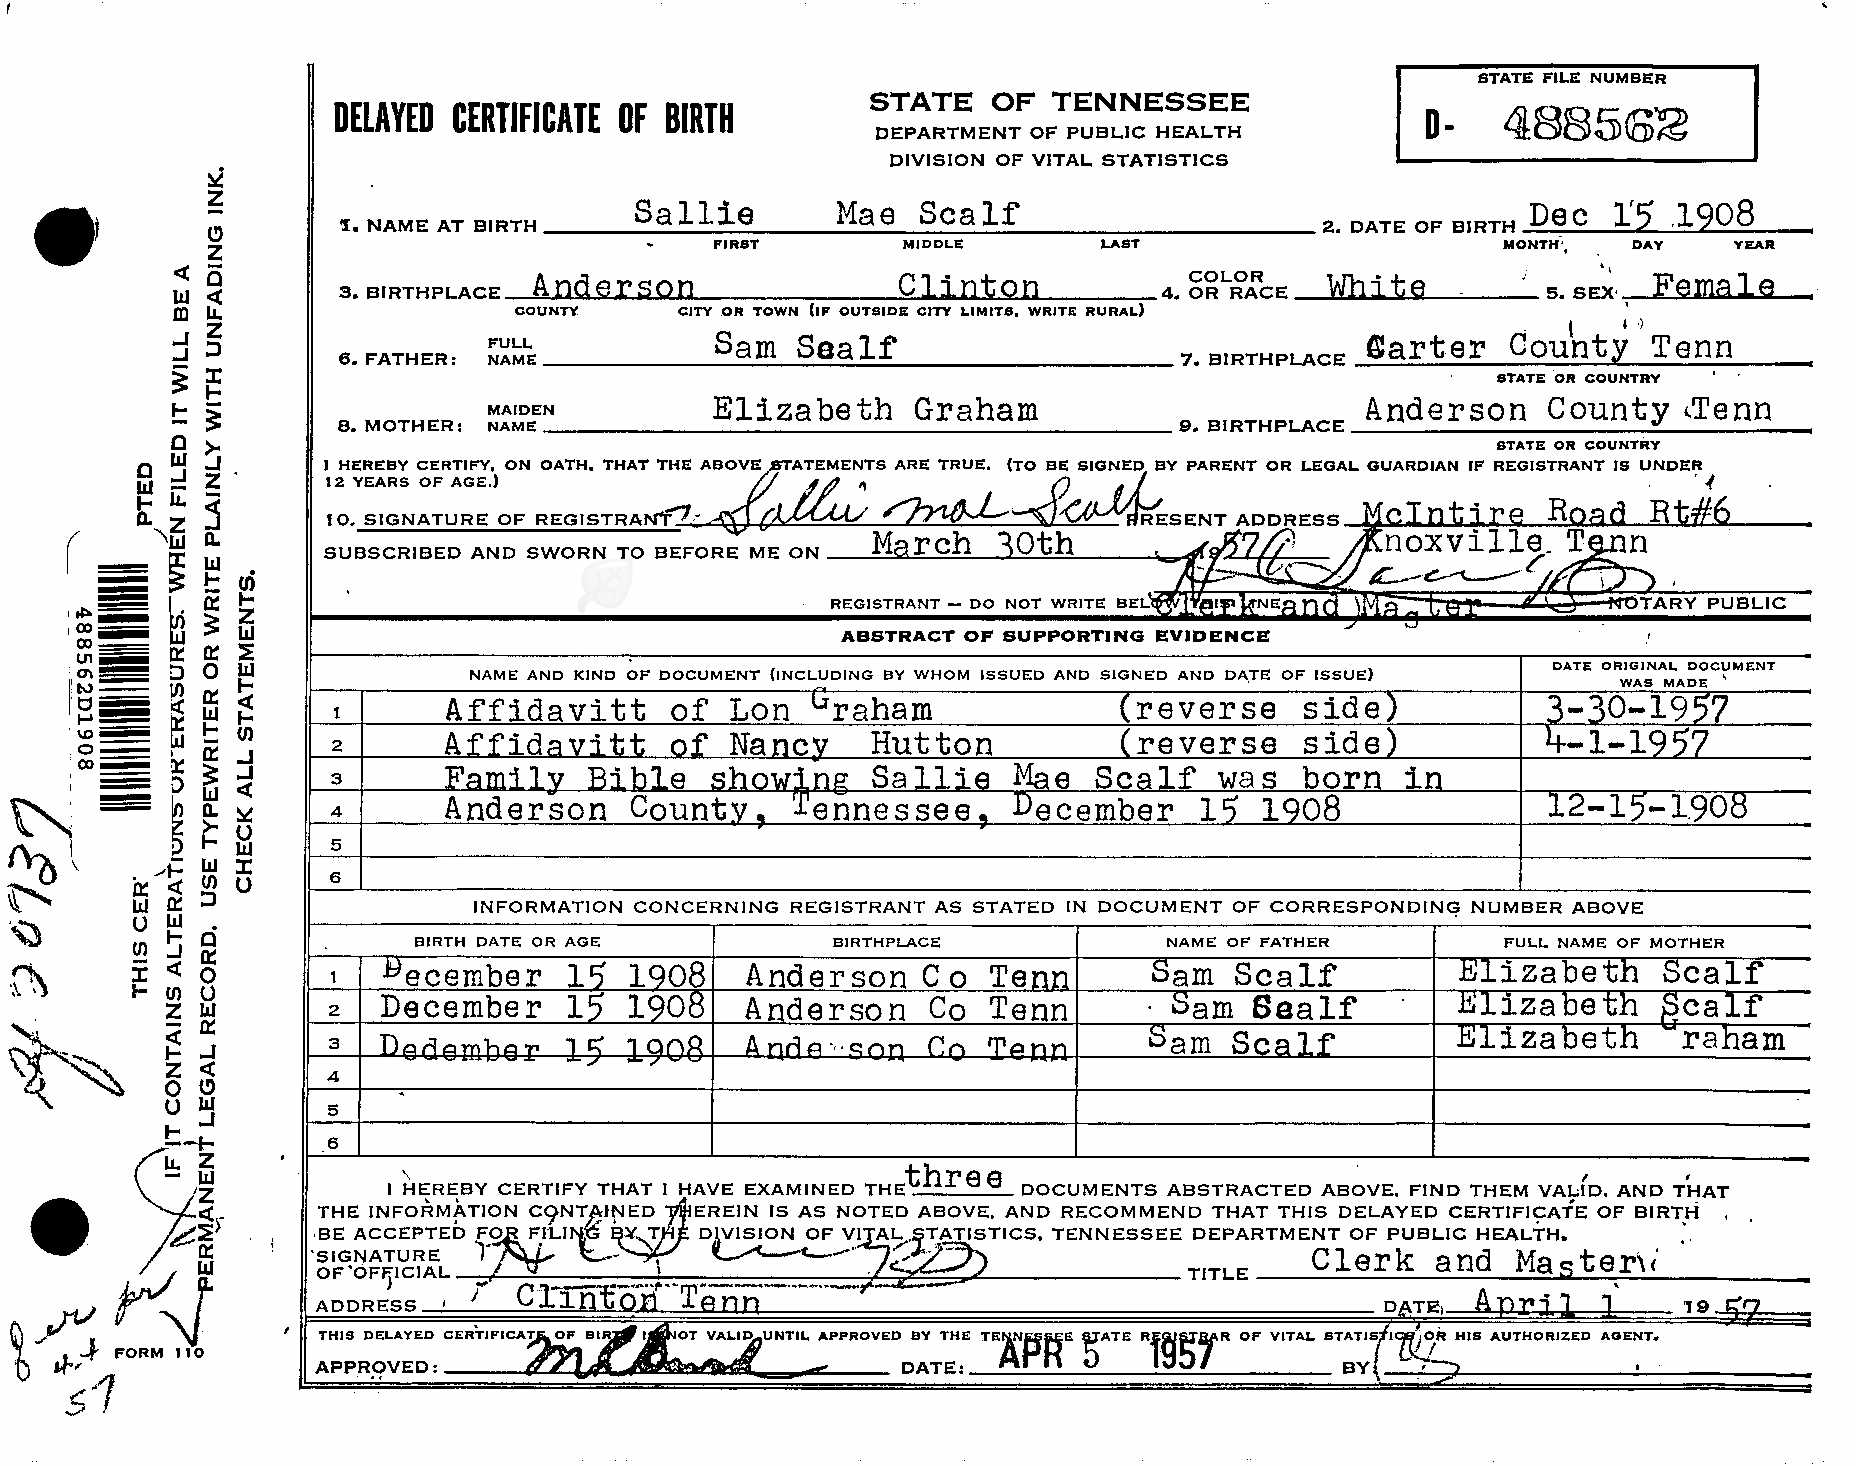 DELAYED CERTIFICATE OF BIRTH
STATE OF TENNESSEE
DEPARTMENT OF PUBLIC HEALTH
DIVISION OF VITAL STATISTICS
STATE FILE NUMBER
D- 488562
1. NAME AT BIRTH Sallie Mae Scalf 2. DATE OF BIRTH Dec 15 1908
FIRST MIDDLE LAST MONTH DAY YEAR
3. BIRTHPLACE Anderson Clinton 4. COLOR OR RACE White 5. SEX Female
COUNTY CITY OR TOWN (IF OUTSIDE CITY LIMITS, WRITE RURAL)
6. FATHER: FULL NAME Sam Scalf 7. BIRTHPLACE Carter County Tenn
STATE OR COUNTRY
8. MOTHER: MAIDEN NAME Elizabeth Graham 9. BIRTHPLACE Anderson County Tenn
STATE OR COUNTRY
I HEREBY CERTIFY, ON OATH, THAT THE ABOVE STATEMENTS ARE TRUE. (TO BE SIGNED BY PARENT OR LEGAL GUARDIAN IF REGISTRANT IS UNDER
12 YEARS OF AGE.)
10. SIGNATURE OF REGISTRANT Sallie Mae Scalf PRESENT ADDRESS McIntire Road Rt#6
SUBSCRIBED AND SWORN TO BEFORE ME ON March 30th 1957 Knoxville Tenn
REGISTRANT - DO NOT WRITE BELOW THIS LINE Clerk and Master NOTARY PUBLIC
ABSTRACT OF SUPPORTING EVIDENCE
NAME AND KIND OF DOCUMENT (INCLUDING BY WHOM ISSUED AND SIGNED AND DATE OF ISSUE) DATE ORIGINAL DOCUMENT WAS MADE
1 Affidavitt of Lon Graham (reverse side) 3-30-1957
2 Affidavitt of Nancy Hutton (reverse side) 4-1-1957
3 Family Bible showing Sallie Mae Scalf was born in
4 Anderson County, Tennessee, December 15 1908 12-15-1908
5
6
INFORMATION CONCERNING REGISTRANT AS STATED IN DOCUMENT OF CORRESPONDING NUMBER ABOVE
BIRTH DATE OR AGE BIRTHPLACE NAME OF FATHER FULL NAME OF MOTHER
1 December 15 1908 Anderson Co Tenn Sam Scalf Elizabeth Scalf
2 December 15 1908 Anderson Co Tenn Sam Scalf Elizabeth Scalf
3 Dedember 15 1908 Anderson Co Tenn Sam Scalf Elizabeth Graham
4
5
6
I HEREBY CERTIFY THAT I HAVE EXAMINED THE three DOCUMENTS ABSTRACTED ABOVE, FIND THEM VALID, AND THAT
THE INFORMATION CONTAINED THEREIN IS AS NOTED ABOVE, AND RECOMMEND THAT THIS DELAYED CERTIFICATE OF BIRTH
BE ACCEPTED FOR FILING BY THE DIVISION OF VITAL STATISTICS, TENNESSEE DEPARTMENT OF PUBLIC HEALTH.
SIGNATURE
OF OFFICIAL TITLE Clerk and Master
ADDRESS Clinton Tenn DATE April 1 19 57
THIS DELAYED CERTIFICATE OF BIRTH IS NOT VALID UNTIL APPROVED BY THE TENNESSEE STATE REGISTRAR OF VITAL STATISTICS OR HIS AUTHORIZED AGENT.
APPROVED: DATE: APR 5 1957 BY
FORM 110
THIS CER PTED
IF IT CONTAINS ALTERATIONS OR ERASURES. WHEN FILED IT WILL BE A
PERMANENT LEGAL RECORD. USE TYPEWRITER OR WRITE PLAINLY WITH UNFADING INK.
CHECK ALL STATEMENTS.
488562D1908
57